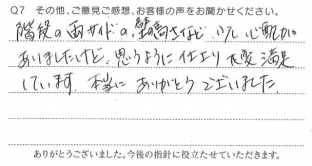 Q7 その他、ご意見ご感想、お客様の声をお聞かせください。
階段の両サイドの、壁の高さなど 少し心配が
ありましたけど、思うように仕上り 大変満足
しています。本当に ありがとう ございました
ありがとうございました。今後の指針に役立たせていただきます。